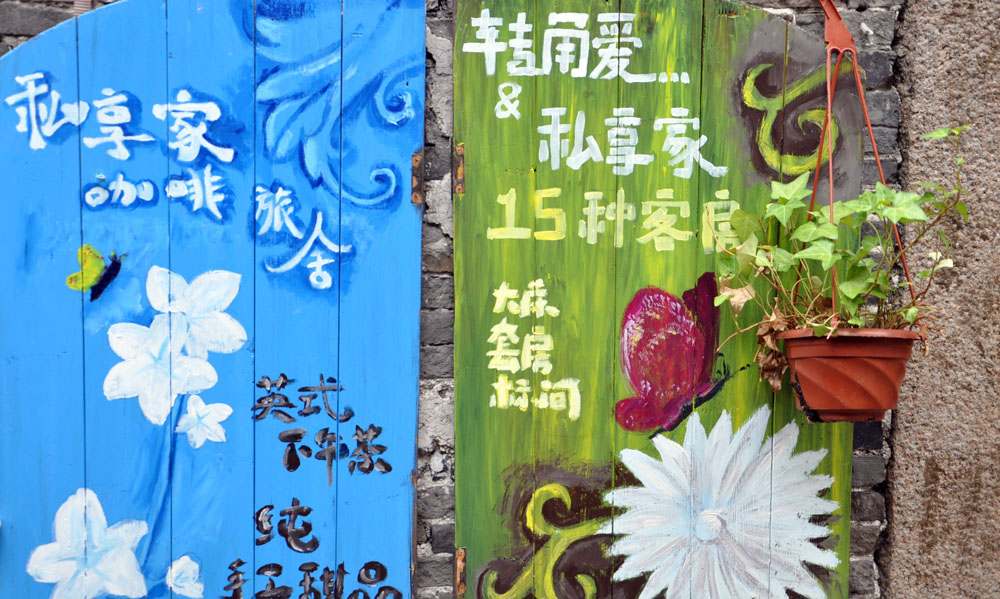 私享家
咖啡
旅舍
英式
下午茶
纯
手工甜品
转角爱...
&
私享家
15种客房
大床
套房
标间